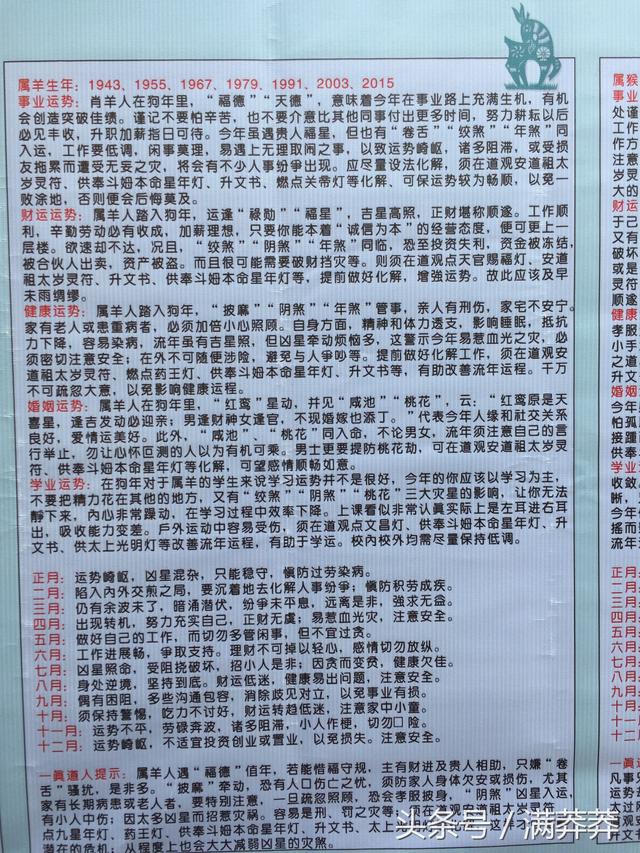 属羊生年：1943、1955、1967、1979、1991、2003、2015
事业运势：肖羊人在狗年里，“福德”“天德”，意味着今年在事业路上充满生机，有机
会创造突破佳绩。谨记不要怕辛苦，也不要介意比其他同事付出更多时间，努力耕耘以后
必见丰收，升职加薪指日可待。今年虽遇贵人福星，但也有“卷舌”“绞煞”“年煞”同
入运，工作要低调，闲事莫理，易遇上无理取闹之事，以致运势崎岖，诸多阻滞，或受损
友拖累而遭受无妄之灾，将会有不少人事纷争出现。应尽量设法化解，须在道观安道祖太
岁灵符、供奉斗姆本命星年灯、升文书、燃点关帝灯等化解、可保运势较为畅顺，以免一
败涂地，否则便会后悔莫及。
财运运势：属羊人踏入狗年，运逢“禄勋”“福星”，吉星高照，正财堪称顺遂。工作顺
利，辛勤劳动必有收成，加薪理想，只要你能本着“诚信为本”的经营态度，便可更上一
层楼。欲速却不达，况且，“绞煞”“阴煞”“年煞”同临，恐至投资失利，资金被冻结，
被合伙人出卖，资产被盗。而且恨可能需要破财挡灾等。则须在道观点天官赐福灯、安道
祖太岁灵符、升文书、供奉斗姆本命星年灯等，提前做好化解，增強运势。故此应该及早
未雨绸缪。
健康运势：属羊人踏入狗年，“披麻”“阴煞”“年煞”管事，亲人有刑伤，家宅不安宁。
家有老人或患重病者，必须加倍小心照顾。自身方面，精神和体力透支，影响睡眠，抵抗
力下降，容易染病，流年虽有吉星照，但凶星牵动烦恼多，这警示今年易惹血光之灾，必
须密切注意安全；在外不可随便涉险，避免与人争吵等。提前做好化解工作，须在道观安
道祖太岁灵符、燃点药王灯、供奉斗姆本命星年灯、升文书等，有助改善流年运程。千万
不可疏忽大意，以免影响健康运程。
婚姻运势：属羊人在狗年里，“红鸾”星动，并见“咸池”“桃花”，云：“红鸾原是天
喜星，逢吉发动必迎亲；男逢财神女逢官，不现婚嫁也添丁。”代表今年人缘和社交关系
良好，爱情运美好。此外，“咸池”、“桃花”同入命，不论男女，流年须注意自己的言
行举止，勿让心怀叵测的人以为有机可乘。男士更要提防桃花劫，可在道观安道祖太岁灵
符、供奉斗姆本命星年灯等化解，可望感情顺畅如意。
学业运势：在狗年对于属羊的学生来说学习运势并不是很好，今年的你应该以学习为主，
不要把精力花在其他的地方，又有“绞煞”“阴煞”“桃花”三大灾星的影响，让你无法
靜下来，內心非常躁动，在学习过程中效率下降。上课看似非常认真实际上是左耳进右耳
出，吸收能力变差。戶外运动中容易受伤，须在道观点文昌灯、供奉斗姆本命星年灯、升
文书、供太上光明灯等改善流年运程，有助于学运。校內校外均需尽量保持低调。
正月：运势崎岖，凶星混杂，只能稳守，慎防过劳染病。
二月：陷入內外交煎之局，要沉着地去化解人事纷爭；慎防积劳成疾。
三月：仍有余波未了，暗涌潜伏，纷爭未平息，远离是非，強求无益。
四月：出现转机，努力充实自己，正财无虞；易惹血光灾，注意安全。
五月：做好自己的工作，而切勿多管闲事，但不宜过贪。
六月：工作进展畅，爭取支持。理财不可掉以轻心，感情切勿放纵。
七月：凶星照命，受阻挠破坏，招小人是非；因贪而变贫，健康欠佳。
八月：身处逆境，坚持到底。财运低迷，健康易出问题，注意安全。
九月：偶有困阻，多些沟通包容，消除歧见对立，以免事业有损。
十月：须保持警惕，吃力不讨好，财运转趋低迷，注意家中小童。
十一月：运势不平，劳碌奔波，诸多阻滞，小人作便，切勿□险。
十二月：运势崎岖，不适宜投资创业或置业，以免损失。注意安全。
一真道人提示：属羊人遇“福德”值年，若能惜福守规，主有财进及贵人相助，只嫌“卷
舌”骚扰，是非多。“披麻”牵动，恐有人口伤亡之忧，须防家人身体欠安或损伤，尤其
家有长期病患或老人者，要特别注意，一旦疏忽照顾，恐会孝服披身，“阴煞”凶星入运，
有小人中伤；因太多凶星而招惹灾祸。容易是刑、罚之灾等；可在道观安道祖太岁灵符、
点九星年灯、药王灯、供奉斗姆本命星年灯、升文书
潜在的危机；从程度上也会大大减弱凶星的灾煞。
头条号／满莽莽